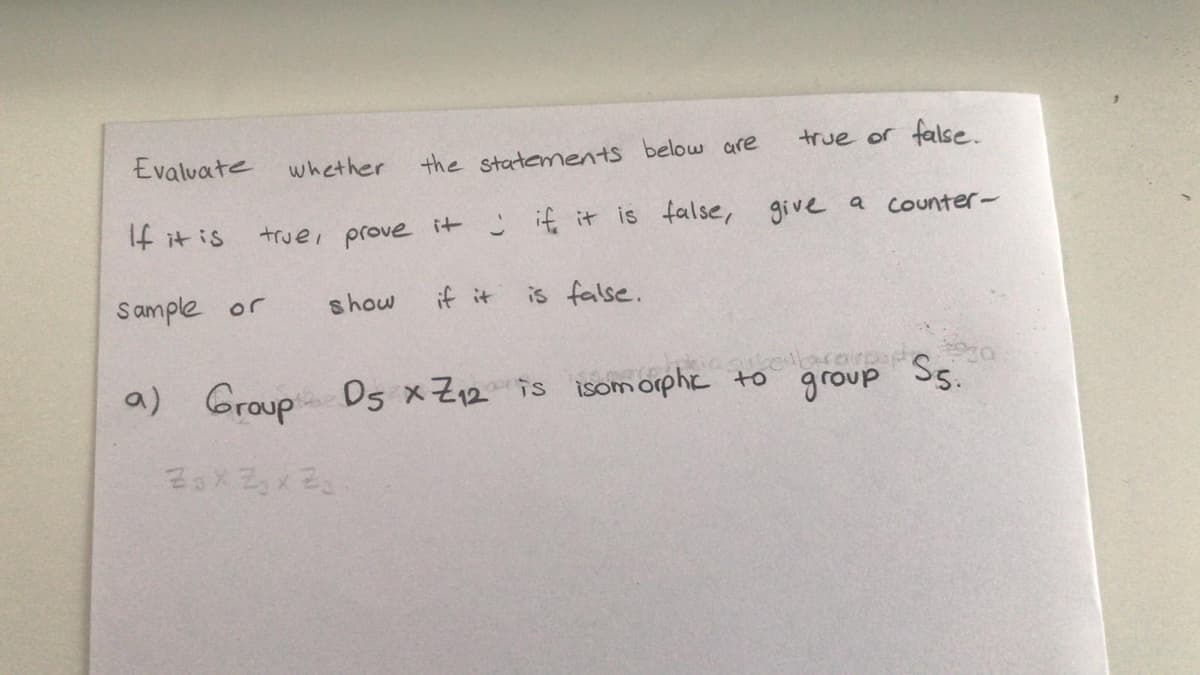 Evaluate whether the statements below are true or false.
If it is true, prove it ; if it is false, give a counter-
sample or show if it is false.
a) Group D5 x Z12 is isomorphic to group S5.